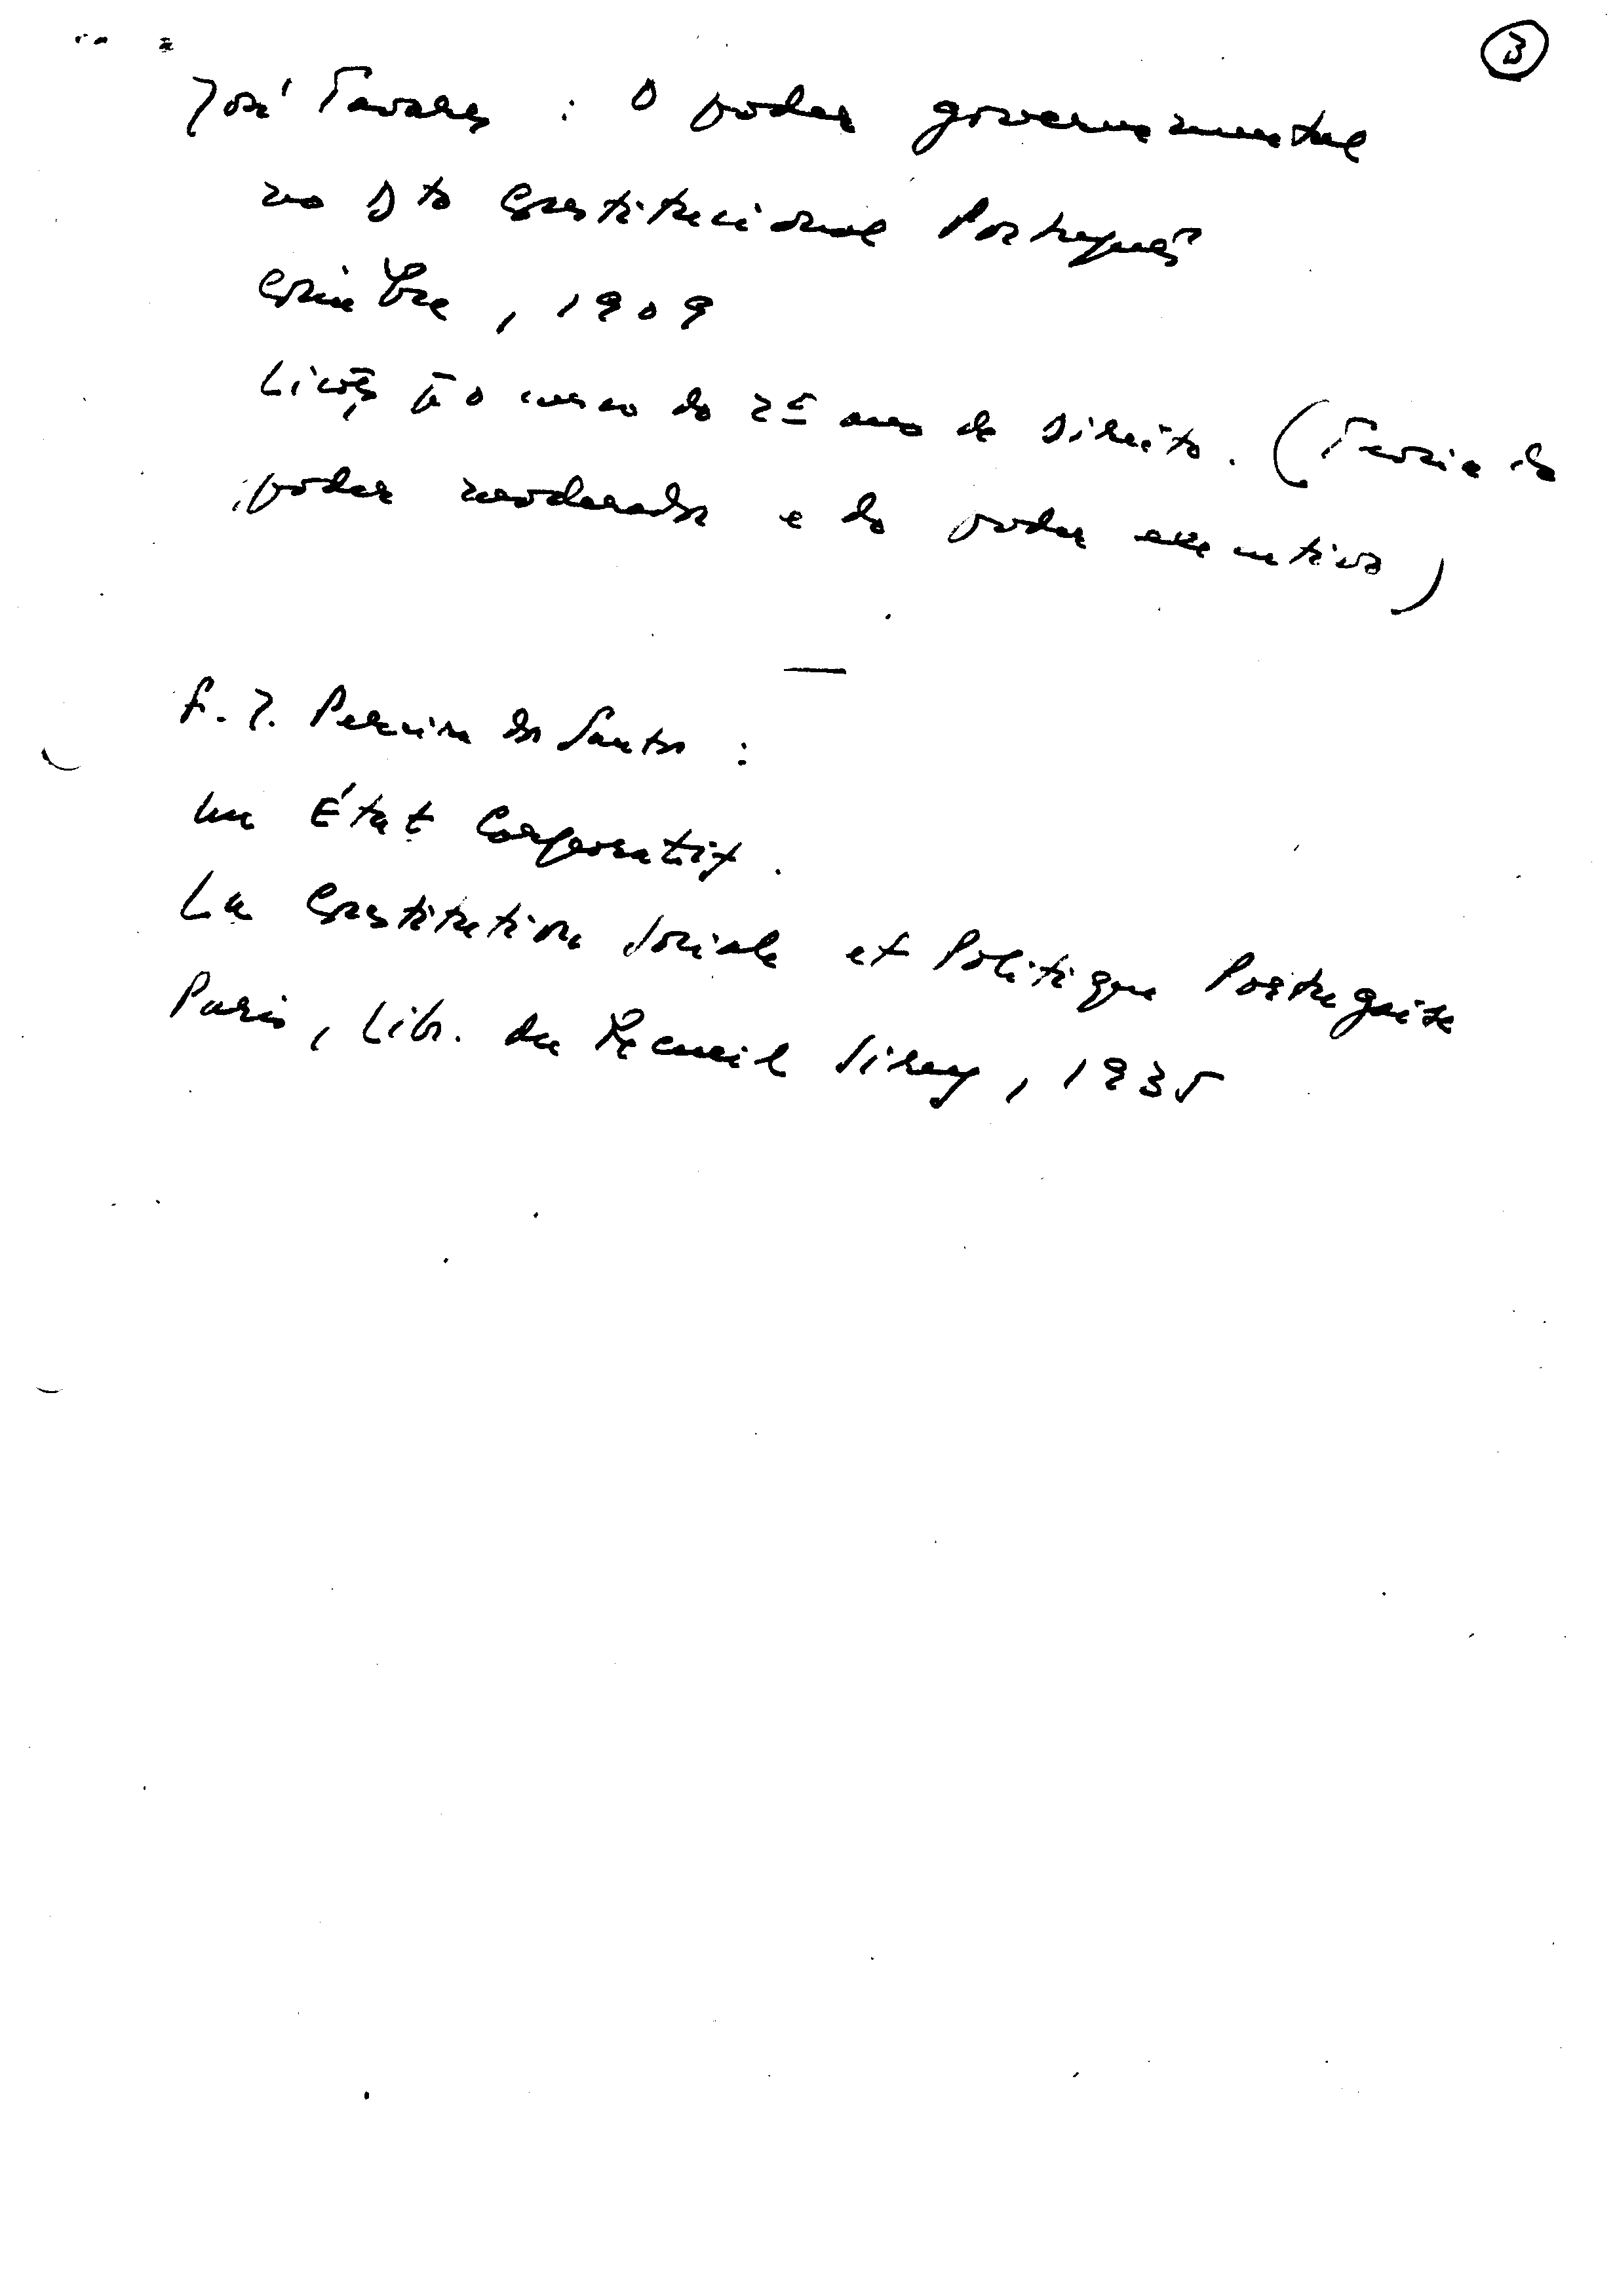 3
José Tavares : O poder governamental
no Dto Constitucional Português
Coimbra, 1909
Lições p.ª o curso do 2º ano de Direito. (Teoria do
poder moderador e do poder executivo)
F. J. Pereira dos Santos :
Un État Corporatif.
La Constitution Sociale et Politique Portugaise
Paris, Lib. du Recueil Sirey, 1935